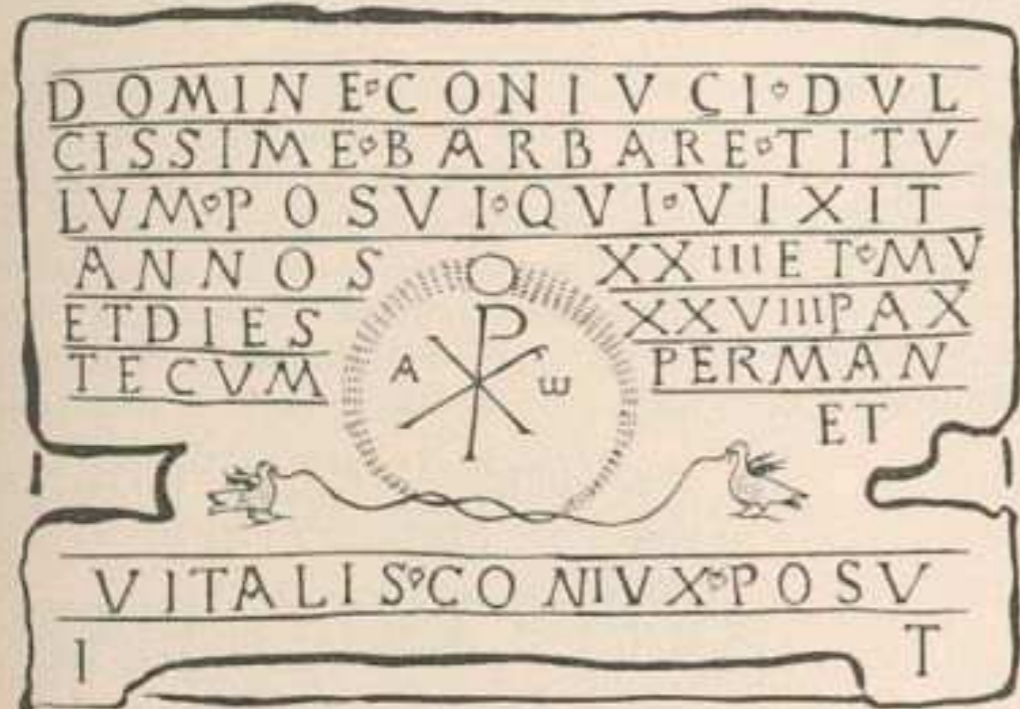 DOMINE CONIVCI DVL
CISSIME BARBARE TITV
LVM POSVI QVI VIXIT
ANNOS XXIII ET MV
ET DIES XXVIIII PAX
TECVM PERMAN
ET
A P ω
VITALIS CONIVX POSV
I T